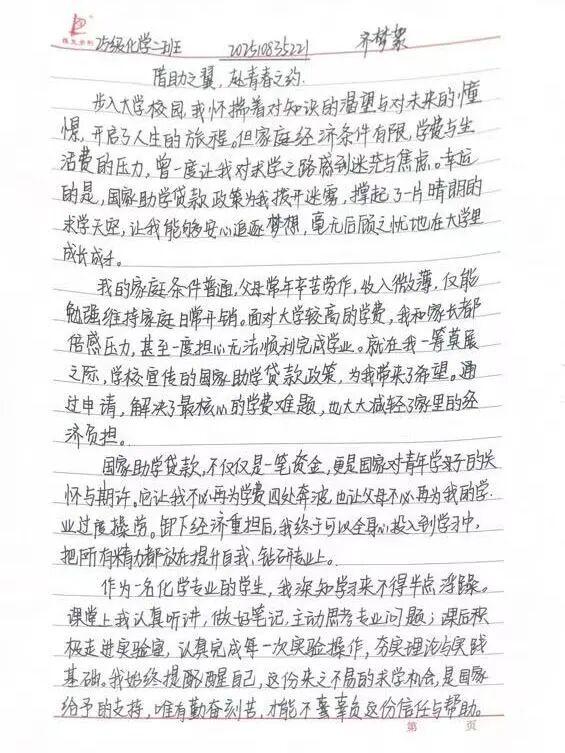 25级化学二班 20251083522 齐梦絮
借助之翼，赴青春之约.
步入大学校园，我怀揣着对知识的渴望与对未来的憧
憬，开启了人生的旅程。但家庭经济条件有限，学费与生
活费的压力，曾一度让我对求学之路感到迷茫与焦虑。幸运
的是，国家助学贷款政策为我拨开迷雾，撑起了一片晴朗的
求学天空，让我能够安心追逐梦想，毫无后顾之忧地在大学里
成长成才。
我的家庭条件普通，父母常年辛苦劳作，收入微薄，仅能
勉强维持家庭日常开销。面对大学较高的学费，我和家长都
倍感压力，甚至一度担心无法顺利完成学业。就在我一筹莫展
之际，学校宣传的国家助学贷款政策，为我带来了希望。通
过申请，解决了最核心的学费难题，也大大减轻了家里的经
济负担。
国家助学贷款，不仅仅是一笔资金，更是国家对青年学子的关
怀与期许。它让我不必再为学费四处奔波，也让父母不必再为我的学
业过度操劳。卸下经济重担后，我终于可以全身心投入到学习中，
把所有精力都放在提升自我、钻研专业上。
作为一名化学专业的学生，我深知学习来不得半点浮躁。
课堂上我认真听讲，做好笔记，主动思考专业问题；课后积
极走进实验室，认真完成每一次实验操作，夯实理论与实践
基础。我始终提醒自己，这份来之不易的求学机会，是国家
给予的支持，唯有勤奋刻苦，才能不辜负这份信任与帮助。
第 页